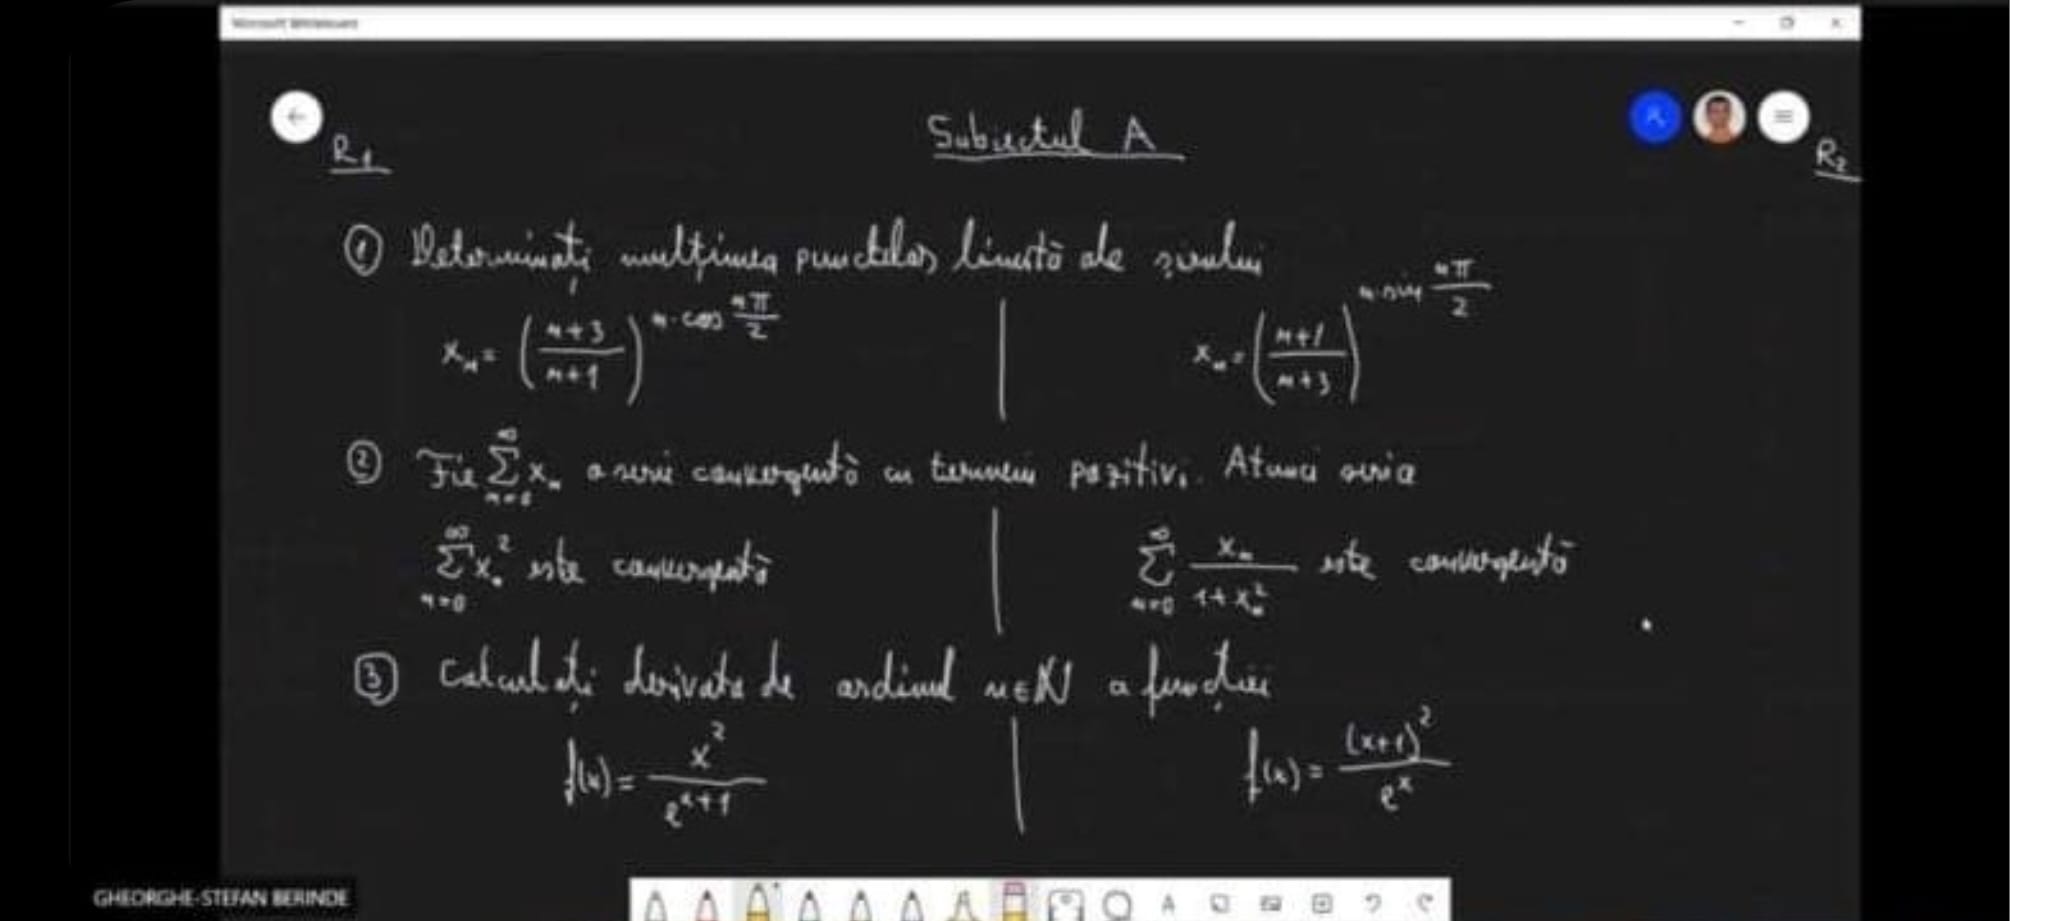 Microsoft Whiteboard
Subiectul A
R1
R2
① Determinați mulțimea punctelor limită ale șirului
x_n = ((n+3)/(n+1))^(n·cos(nπ/2)) | x_n = ((n+1)/(n+3))^(n·sin(nπ/2))
② Fie ∑_{n=0}^{∞} x_n o serie convergentă cu termeni pozitivi. Atunci seria
∑_{n=0}^{∞} x_n^2 este convergentă | ∑_{n=0}^{∞} x_n/(1+x_n^2) este convergentă
③ Calculați derivata de ordinul n∈ℕ a funcției
f(x) = x^2/e^(x+1) | f(x) = (x+1)^2/e^x
GHEORGHE-STEFAN BERINDE